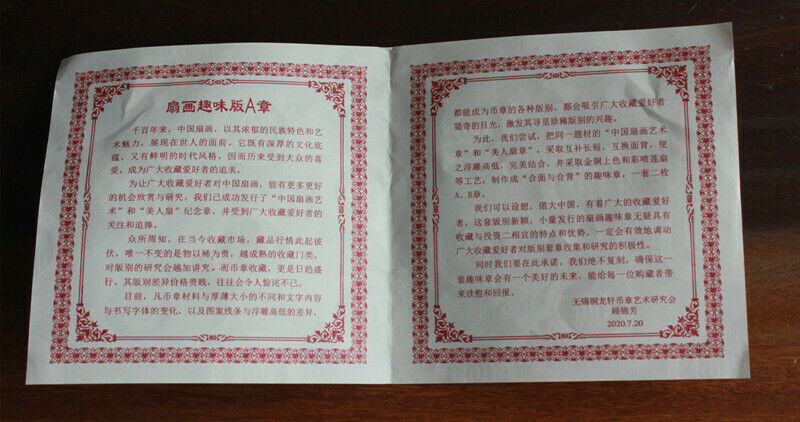 扇画趣味版A章
千百年来，中国扇画，以其浓郁的民族特色和艺
术魅力，展现在世人的面前，它既有深厚的文化底
蕴，又有鲜明的时代风格，因而历来受到大众的喜
爱，成为广大收藏爱好者的追求。
为让广大收藏爱好者对中国扇画，能有更多更好
的机会欣赏与研究，我们已成功发行了“中国扇画艺
术”和“美人扇”纪念章，并受到广大收藏爱好者的
关注和追捧。
众所周知，在当今收藏市场，藏品行情此起彼
伏，唯一不变的是物以稀为贵，越成熟的收藏门类，
对版别的研究会越加讲究。而币章收藏，更是日趋盛
行，其版别差异价格贵贱，往往会令人惊诧不已。
目前，凡币章材料与厚薄大小的不同和文字内容
与书写字体的变化，以及图案线条与浮雕高低的差异，
都能成为币章的各种版别，都会吸引广大收藏爱好者
猎奇的目光，激发其寻觅珍稀版别的兴趣。
为此，我们尝试，把同一题材的“中国扇画艺术
章”和“美人扇章”，采取互补长短，互换面背，使
之浮雕高低，完美结合，并采取金铜上色和彩喷莲扇
等工艺，制作成“合面与合背”的趣味章，一套二枚
A、B章。
我们可以设想，偌大中国，有着广大的收藏爱好
者，这套版别新颖，小量发行的扇画趣味章无疑具有
收藏与投资二相宜的特点和优势，一定会有效地调动
广大收藏爱好者对版别套章收集和研究的积极性。
同时我们要在此承诺，我们绝不复刻，确保这一
套趣味章会有一个美好的未来，能给每一位购藏者带
来欣慰和回报。
无锡铜龙轩币章艺术研究会
顾锦芳
2020.7.20